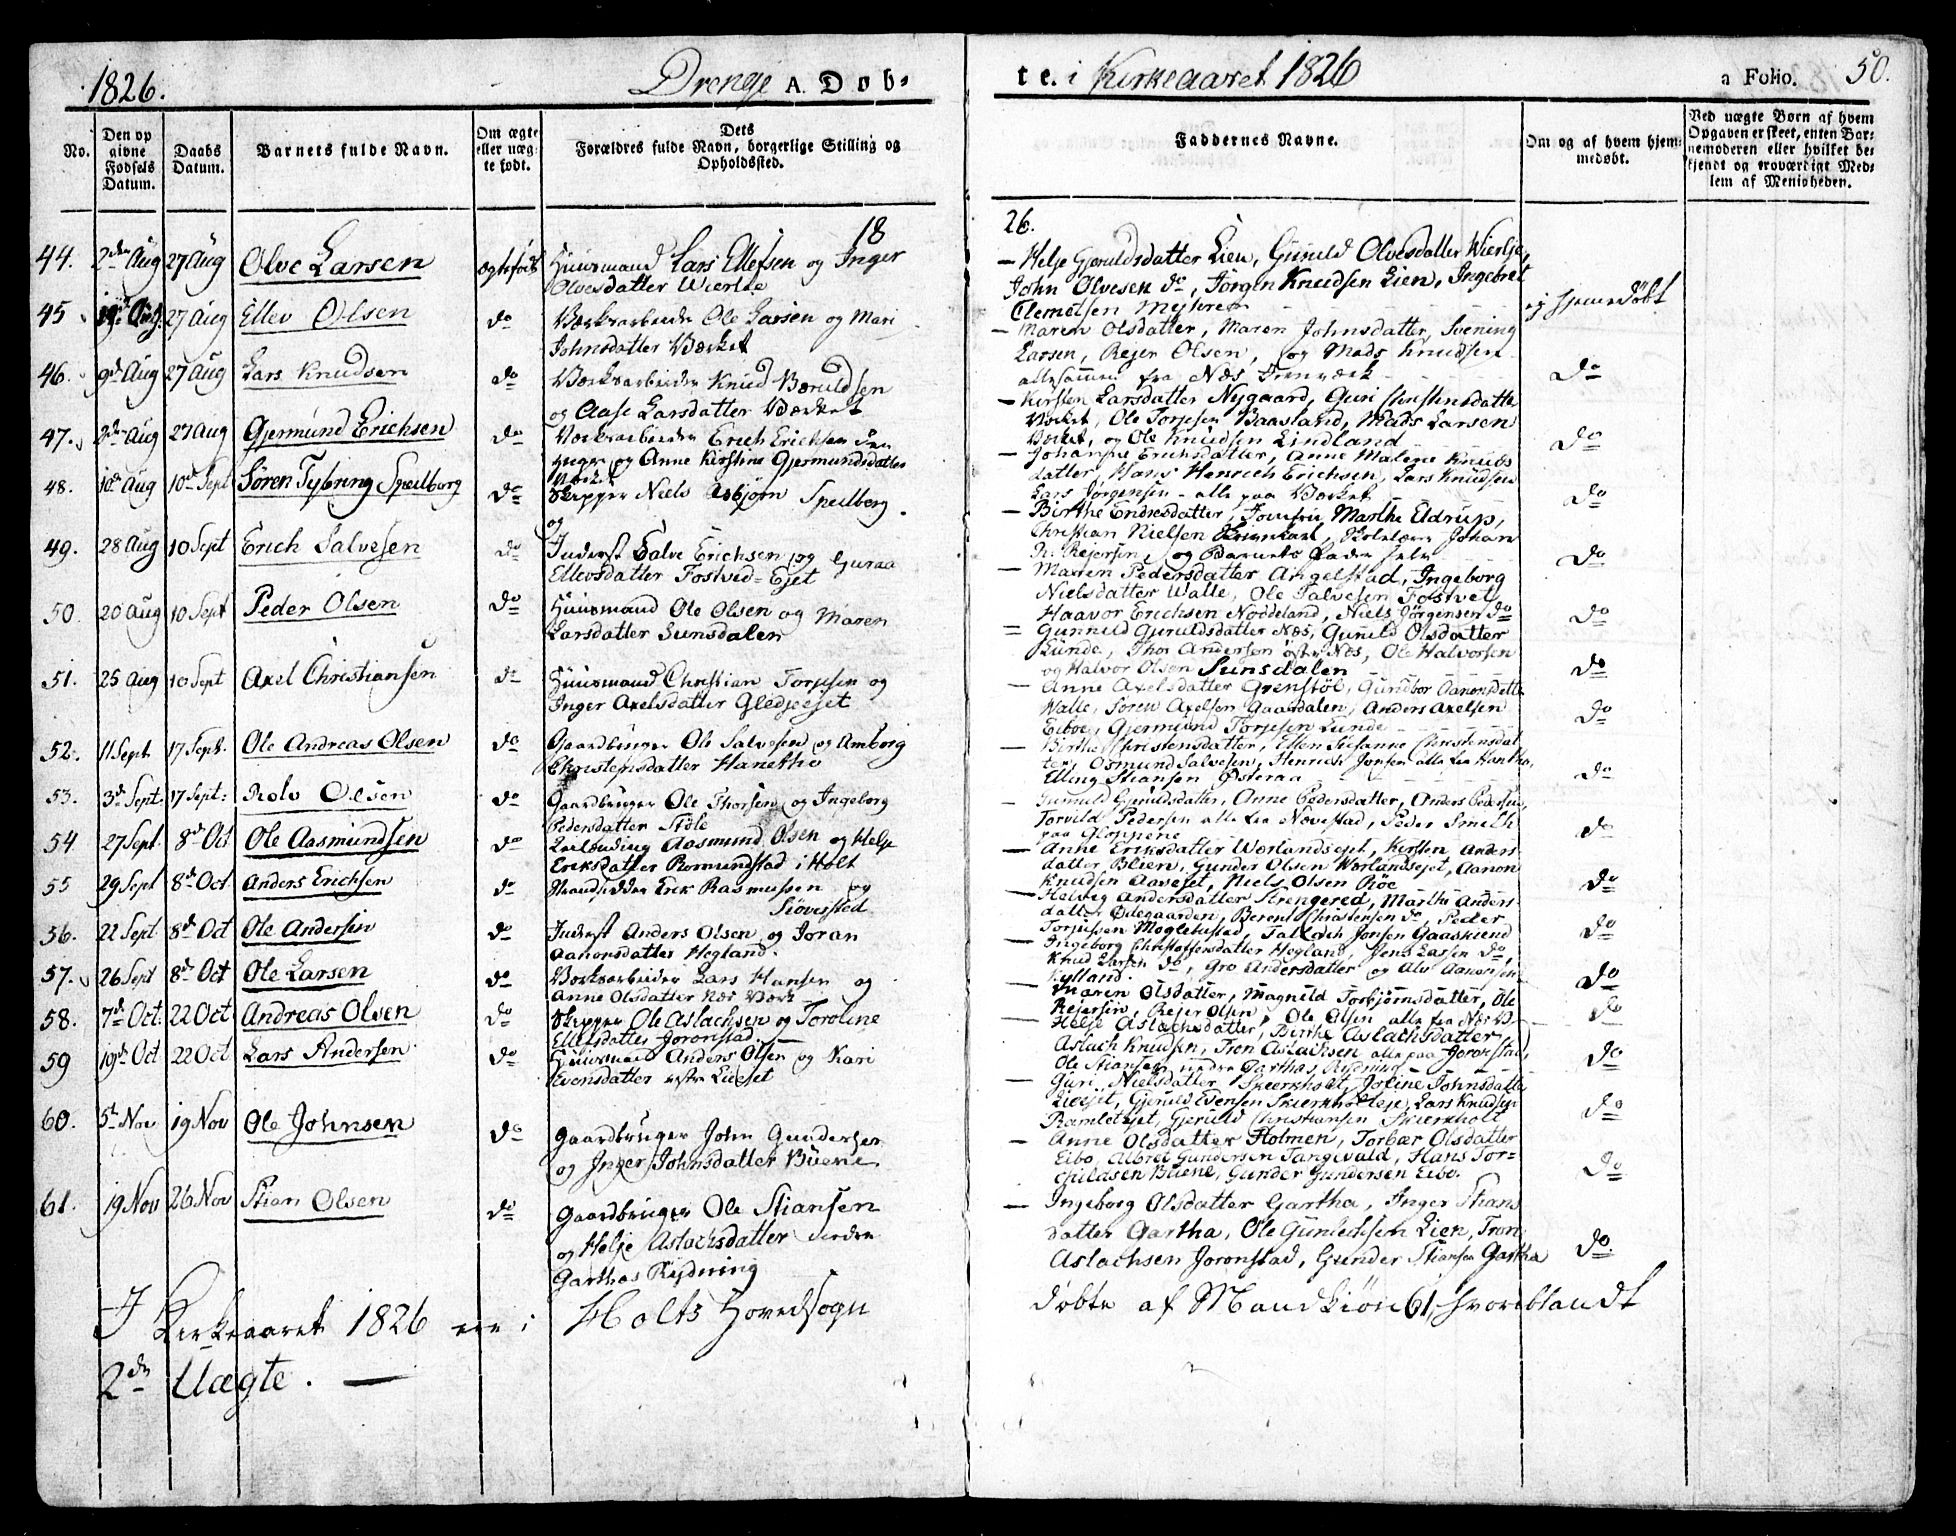 1826.
Drenge A. Døb-
No.
Den opgivne Fødsels Datum.
Daabs Datum.
Barnets fulde Navn.
Om ægte eller uægte født.
Dets Forældres fulde Navn, borgerlige Stilling og Opholdssted.
18
44. 2den Aug 27 Aug Olve Larsen ægtefødt Huusmand Lars Ellefsen og Inger
Olvesdatter Wierlie
45 Aug. 27 Aug Ellev Olsen do Værksarbeider Ole Larsen og Mari
Johnsdatter Værket
46. 9de Aug 27 Aug Lars Knudsen do Værksarbeider Knud Bæruldsen
og Aase Larsdatter Værket
47. 2den Aug 27 Aug Gjermund Erichsen do Værksarbeider Erich Erichsen
og Anne Kirstine Gjermundsdatter
48. 10de Aug 10de Sept Søren Tybring Speilberg do Skipper Niels Asbjørn Speilberg.
og
49. 28 Aug 10 Sept Erich Salvesen do Inderst Salve Erichsen og Guraa
Ellevsdatter Fostved-Ejet
50. 20 Aug 10 Sept Peder Olsen do Huusmand Ole Olsen og Maren
Larsdatter Sunsdalen
51. 25 Aug 10 Sept Axel Christiansen do Huusmand Christian Torjesen og
Inger Axelsdatter Gledjeeiet
52. 11 Sept 17 Sept. Ole Andreas Olsen do Gaardbruger Ole Salvesen og Amborg
Christensdatter Hanetho
53. 3de Sept. 17 Sept: Rolv Olsen do Gaardbruger Ole Thorsen og Ingeborg
Pedersdatter Støle
54 27 Sept 8de Oct Ole Aasmundsen do Aasmund Olsen og Helje
Eriksdatter Rormundstad i Holt
55 29 Sept 8de Oct. Anders Erichsen do Erik Rasmussen og
Siøversted
56. 22 Sept 8de Oct Ole Andersen do Inderst Anders Olsen og Joran
Aanonsdatter Hegland.
57. 26 Sept 8de Oct Ole Larsen do Værksarbeider Lars Hansen og
Anne Olsdatter Næs Værk
58. 7de Oct. 22 Oct Andreas Olsen do Skipper Ole Aslachsen og Toroline
Ellefsdatter Joronstad.
59 19de Oct 22 Oct Lars Andersen do Huusmand Anders Olsen og Kari
Evensdatter Lieeiet
60. 5te Nov 19 Nov Ole Johnsen do Gaardbruger John Gundersen
og Inger Johnsdatter Buene.
61. 19 Nov 26 Nov Stian Olsen do Gaardbruger Ole Stiansen
og Helje Aslachsdatter Nedre
Garthas Rydning
I Kirkeaaret 1826 ere i Holts Hovedsogn
2de Uægte. —
te. i Kirkeaaret 1826
a Folio. 50.
Faddernes Navne.
Om og af hvem hjemmedøbt.
Ved uægte Børn af hvem Opgaven er skeet, enten Barnemoderen eller hvilket bekjendt og troværdigt Medlem af Menigheden.
26.
– Helje Gjeruldsdatter Lien, Gunild Olvesdatter Wierlie,
John Olvesen do, Jørgen Knudsen Lien, Ingebret
Clemetsen
ej hjemmedøbt
– Maren Olsdatter, Maren Johnsdatter, Svening
Larsen, Rejer Olsen, og Mads Knudsen
allesammen fra Næs Jernværk do
– Kirsten Larsdatter Nygaard, Guri Christensdatter
Værket, Ole Torjesen Baasland, Mads Larsen
Værket, og Ole Knudsen Lindland do
– Johanne Erichsdatter, Anne Malene Knuds
datter, Hans Henrich Erichsen, Lars Knudsen
Lars Jørgensen – alle paa Værket do
– Birthe Endresdatter, Jomfru Marthe Eldrup,
Christian Nielsen Johan
N. Rejersen, og Barnets Fader selv do
– Maren Pedersdatter Angelstad, Ingeborg
Nielsdatter Walle, Ole Salvesen Fostvet
Haavor Erichsen Noddeland, Niels Jørgensen do do
– Gunnild Gjeruldsdatter Næs, Gunild Olsdatter
Lunde, Thor Andersen Næs, Ole Halvorsen
og Halvor Olsen Sunsdalen do
– Anne Axelsdatter Grenstøl, Gundbor Aanonsdatter
Walle, Søren Axelsen Gaasdalen, Anders Axelsen
Eiboe, Gjermund Torjesen Lunde do
– Birthe Christensdatter, Ellen Susanne Christensdat
ter, Osmund Salvesen, Henrich Jonsen alle fra Hantho,
Elling Stiansen Østeraa do
– Gunnild Gjeruldsdatter, Anne Pedersdatter, Anders Pedersen,
Torvild Pedersen alle fra Nævestad, Peder Smith
paa Gloppene do
– Anne Eriksdatter Worlandseiet, Kirsten Anders-
datter Blien, Gunder Olsen Worlandsejet, Aanon
Knudsen Aaveset, Niels Olsen Røe do
– Helvig Andersdatter Strengered, Marthe Anders-
datter Ødegaarden, Berent Christensen do, Peder
Torjussen Moglestuestad, Tallach Jonsen Gaaslund do
– Ingeborg Christophersdatter Hegland, Jens Larsen do,
Knud Larsen do, Gro Andersdatter og Alv Aanonsen
Kylland. do
– Maren Olsdatter, Magnild Torbjørnsdatter, Ole
Rejersen, Rejer Olsen, Ole Olsen alle fra Næs V. do
– Helje Aslachsdatter, Birthe Aslachsdatter,
Aslach Knudsen, Tron Aslachsen alle paa Joronstad,
Ole Stiansen nedre Garthas Rydning do
– Guri Nielsdatter Skierkholt, Joline Johnsdatter
Lieejet, Gjeruld Evensen Skierkholteje, Lars Knudsen
Ramletejet, Gjeruld Christiansen Skierkholt do
– Anne Olsdatter Holmen, Torbær Olsdatter
Eibo, Albret Gundersen Tangevald, Hans Tor-
kjildsen Buene, Gunder Gundersen Eibo. do
– Ingeborg Olsdatter Gartha, Inger Stians
datter Gartha, Ole Gunlechsen Lien, Tron
Aslachsen Joronstad, Gunder Stiansen Gartha do.
døbte af Mandkiøn 61, hvoriblandt